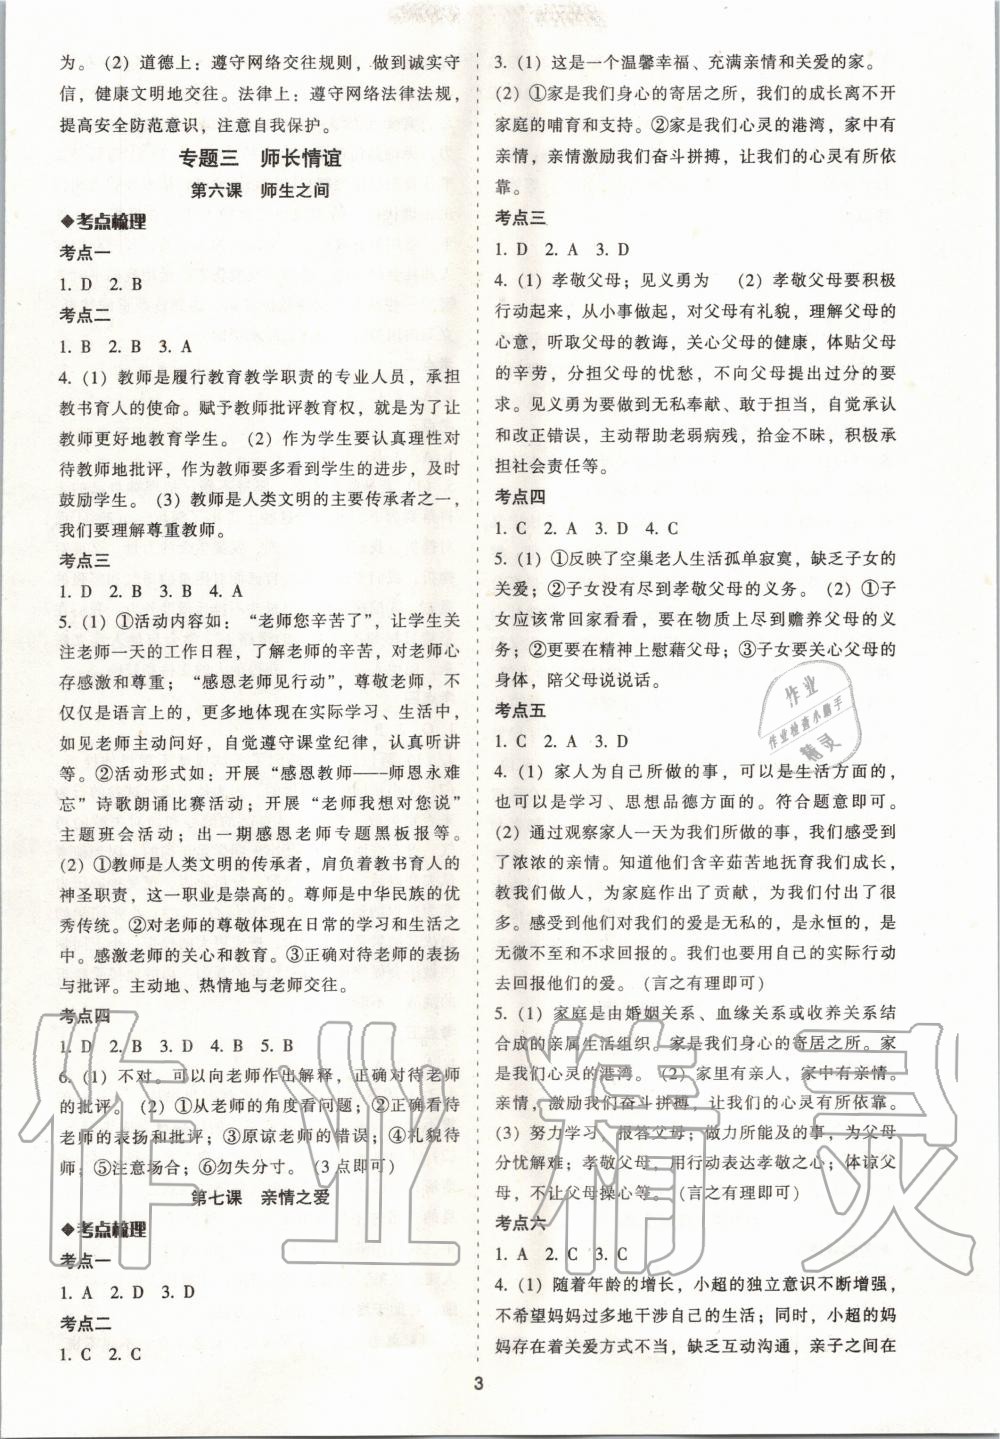 为。（2）道德上：遵守网络交往规则，做到诚实守
信，健康文明地交往。法律上：遵守网络法律法规，
提高安全防范意识，注意自我保护。
专题三 师长情谊
第六课 师生之间
◆考点梳理
考点一
1. D 2. B
考点二
1. B 2. B 3. A
4.（1）教师是履行教育教学职责的专业人员，承担
教书育人的使命。赋予教师批评教育权，就是为了让
教师更好地教育学生。（2）作为学生要认真理性对
待教师地批评，作为教师要多看到学生的进步，及时
鼓励学生。（3）教师是人类文明的主要传承者之一，
我们要理解尊重教师。
考点三
1. D 2. B 3. B 4. A
5.（1）①活动内容如：“老师您辛苦了”，让学生关
注老师一天的工作日程，了解老师的辛苦，对老师心
存感激和尊重；“感恩老师见行动”，尊敬老师，不
仅仅是语言上的，更多地体现在实际学习、生活中，
如见老师主动问好，自觉遵守课堂纪律，认真听讲
等。②活动形式如：开展“感恩教师——师恩永难
忘”诗歌朗诵比赛活动；开展“老师我想对您说”
主题班会活动；出一期感恩老师专题黑板报等。
（2）①教师是人类文明的传承者，肩负着教书育人的
神圣职责，这一职业是崇高的。尊师是中华民族的优
秀传统。②对老师的尊敬体现在日常的学习和生活之
中。感激老师的关心和教育。③正确对待老师的表扬
与批评。主动地、热情地与老师交往。
考点四
1. D 2. B 3. D 4. B 5. B
6.（1）不对。可以向老师作出解释，正确对待老师
的批评。（2）①从老师的角度看问题；②正确看待
老师的表扬和批评；③原谅老师的错误；④礼貌待
师；⑤注意场合；⑥勿失分寸。（3点即可）
第七课 亲情之爱
◆考点梳理
考点一
1. A 2. D 3. D
考点二
1. C 2. C
3.（1）这是一个温馨幸福、充满亲情和关爱的家。
（2）①家是我们身心的寄居之所，我们的成长离不开
家庭的哺育和支持。②家是我们心灵的港湾，家中有
亲情，亲情激励我们奋斗拼搏，让我们的心灵有所依
靠。
考点三
1. D 2. A 3. D
4.（1）孝敬父母；见义勇为 （2）孝敬父母要积极
行动起来，从小事做起，对父母有礼貌，理解父母的
心意，听取父母的教诲，关心父母的健康，体贴父母
的辛劳，分担父母的忧愁，不向父母提出过分的要
求。见义勇为要做到无私奉献、敢于担当，自觉承认
和改正错误，主动帮助老弱病残，拾金不昧，积极承
担社会责任等。
考点四
1. C 2. A 3. D 4. C
5.（1）①反映了空巢老人生活孤单寂寞，缺乏子女的
关爱；②子女没有尽到孝敬父母的义务。（2）①子
女应该常回家看看，要在物质上尽到赡养父母的义
务；②更要在精神上慰藉父母；③子女要关心父母的
身体，陪父母说说话。
考点五
1. C 2. A 3. D
4.（1）家人为自己所做的事，可以是生活方面的，
也可以是学习、思想品德方面的。符合题意即可。
（2）通过观察家人一天为我们所做的事，我们感受到
了浓浓的亲情。知道他们含辛茹苦地抚育我们成长，
教我们做人，为家庭作出了贡献，为我们付出了很
多。感受到他们对我们的爱是无私的，是永恒的，是
无微不至和不求回报的。我们也要用自己的实际行动
去回报他们的爱。（言之有理即可）
5.（1）家庭是由婚姻关系、血缘关系或收养关系结
合成的亲属生活组织。家是我们身心的寄居之所，家
是我们心灵的港湾。（2）家里有亲人，家中有亲情。
亲情，激励我们奋斗拼搏，让我们的心灵有所依靠。
（3）努力学习，报答父母；做力所能及的事，为父母
分忧解难；孝敬父母，用行动表达孝敬之心；体谅父
母，不让父母操心等。（言之有理即可）
考点六
1. A 2. C 3. C
4.（1）随着年龄的增长，小超的独立意识不断增强，
不希望妈妈过多地干涉自己的生活；同时，小超的妈
妈存在着关爱方式不当，缺乏互动沟通，亲子之间在
3
作业
作业检查小助手
精灵
作业精灵